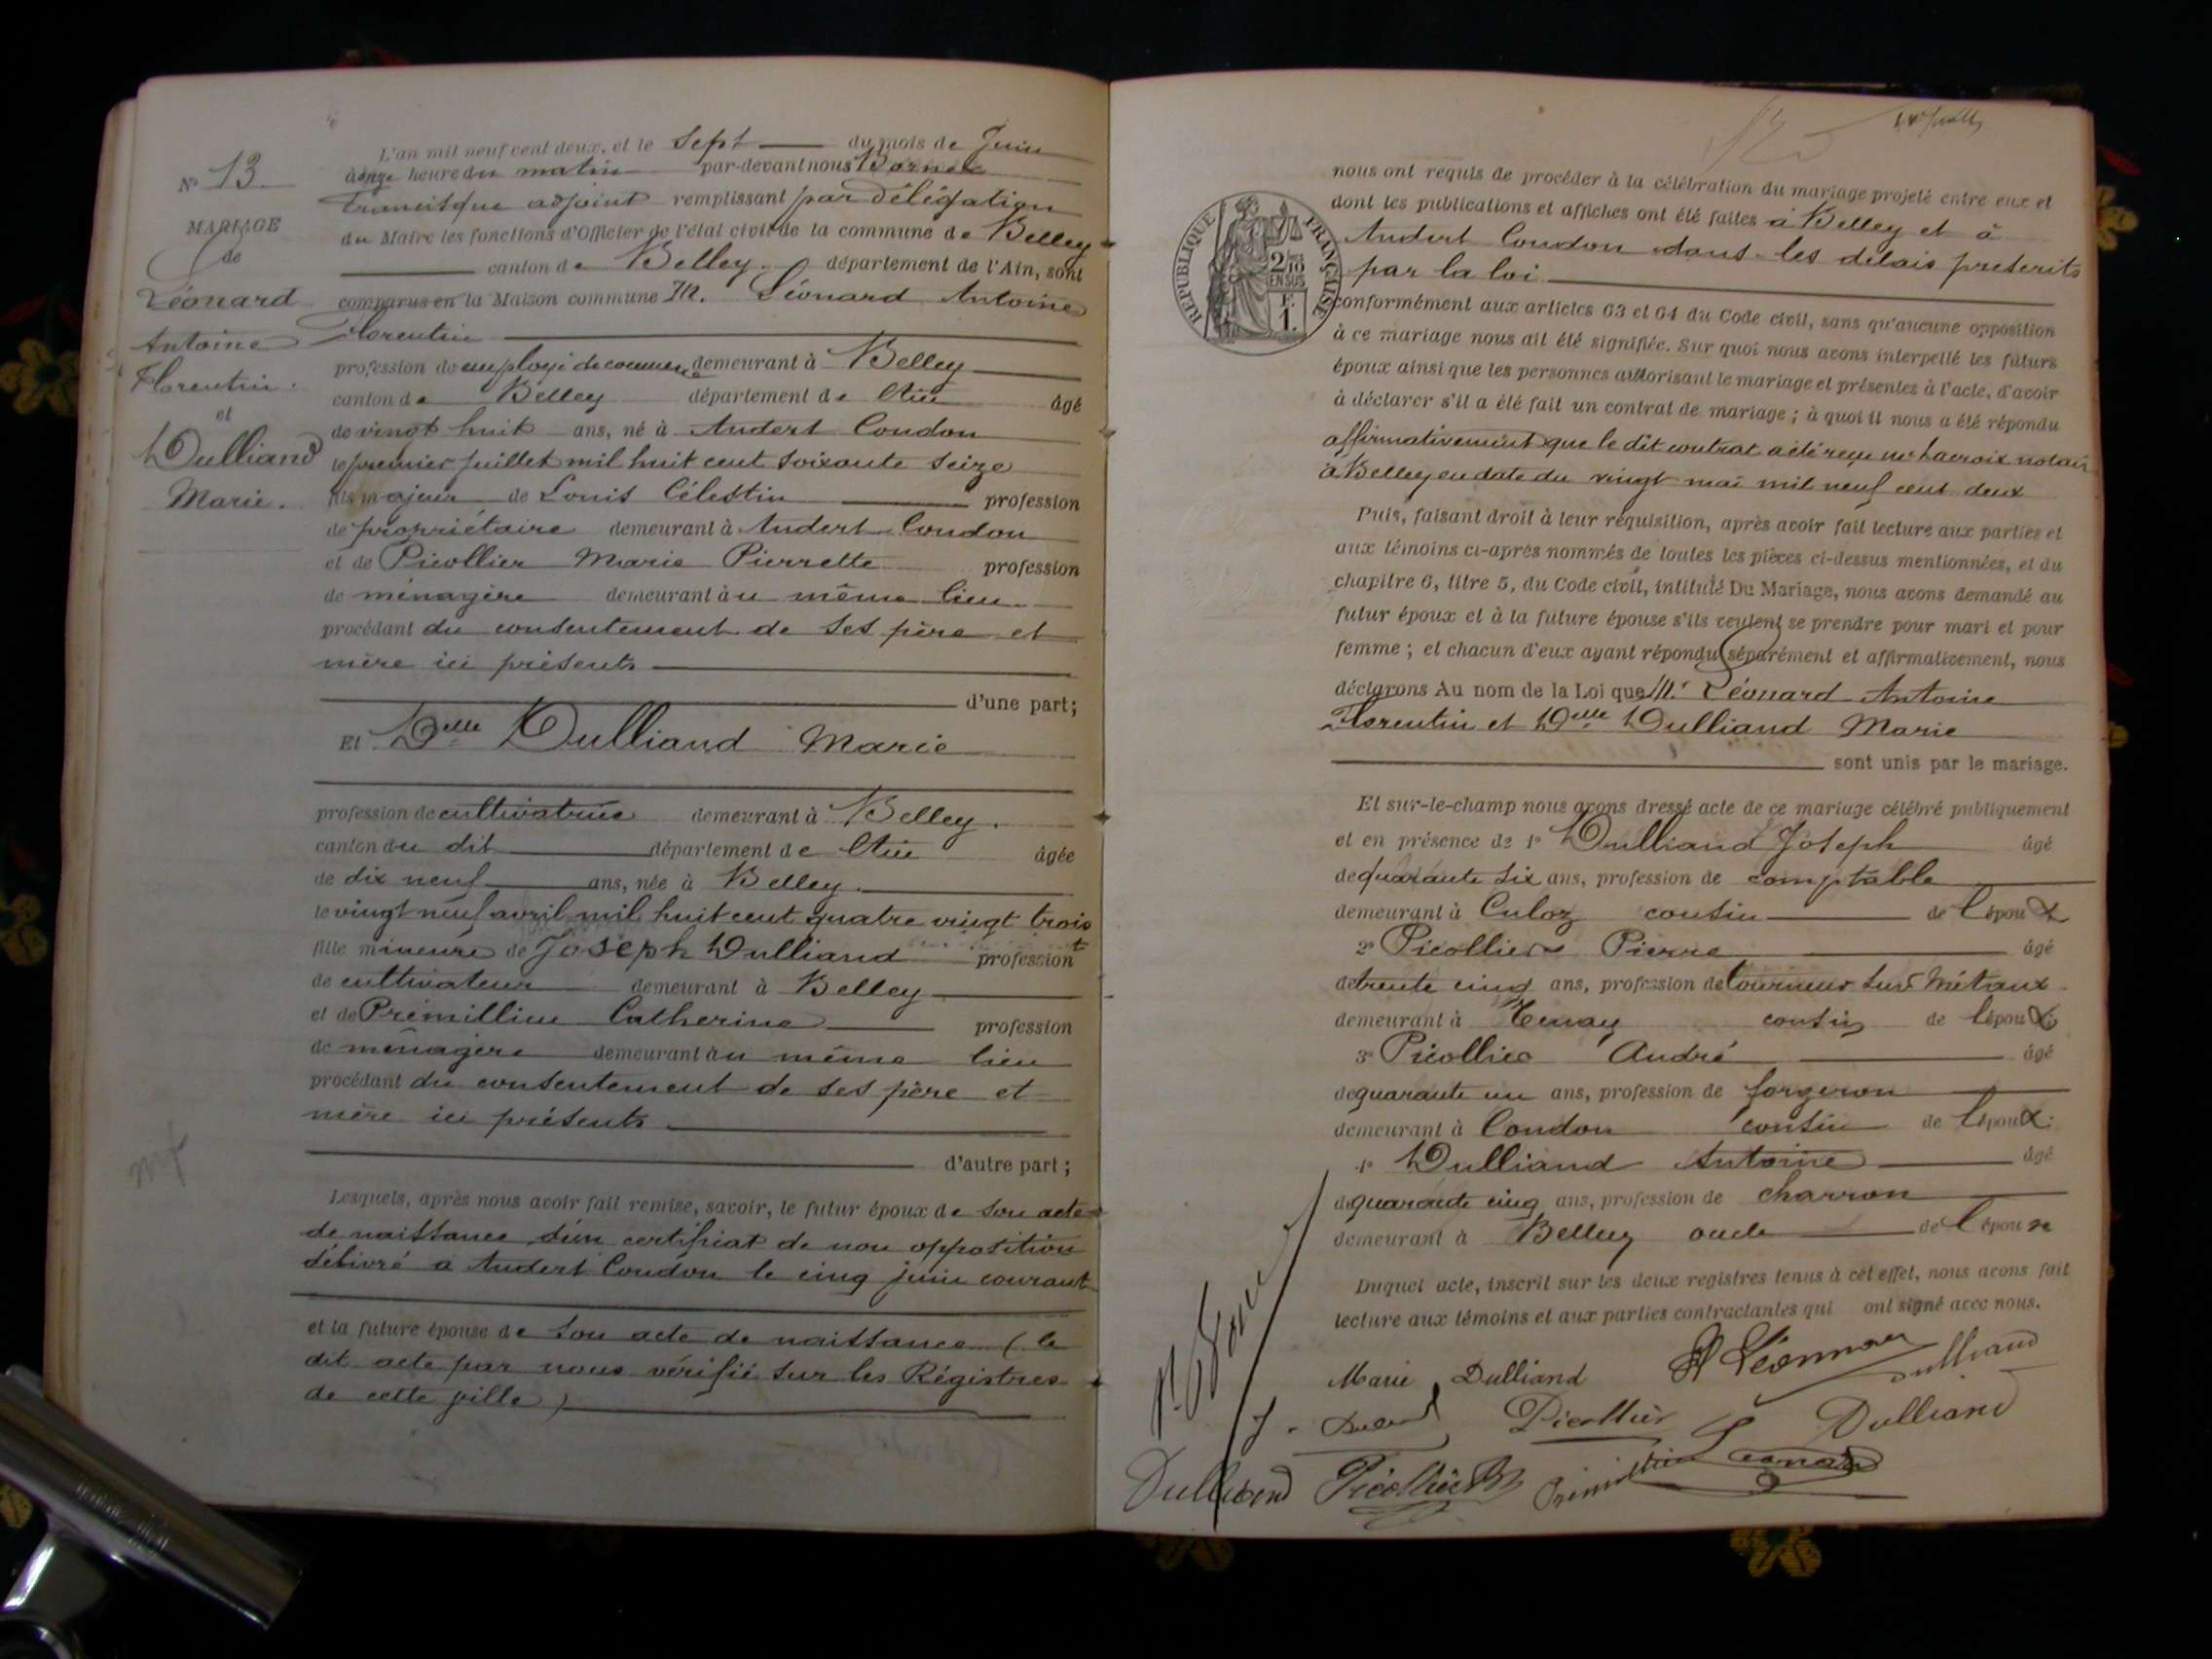 L'an mil neuf cent deux, et le Sept du mois de Juin
N° 13
à onze heure du matin par-devant nous Bornex
Francisque adjoint remplissant par Délégation
MARIAGE
du Maire les fonctions d'Officier de l'état civil de la commune de Belley
de
canton de Belley. département de l'Ain, sont
Léonard
comparus en la Maison commune M. Léonard Antoine
Antoine
Florentin
Florentin.
profession de employé de commerce demeurant à Belley
canton de Belley département de l'Ain âgé
et
de vingt huit ans, né à Andert Condon
Dulliand
le premier juillet mil huit cent soixante seize
Marie.
fils majeur de Louis Célestin profession
de propriétaire demeurant à Andert Condon
et de Picollier Marie Pierrette profession
de ménagère demeurant au même lieu.
procédant du consentement de ses père et
mère ici présents
d'une part;
Et Delle Dulliand Marie
profession de cultivatrice demeurant à Belley.
canton du dit département de l'Ain âgée
de dix neuf ans, née à Belley.
le vingt neuf avril mil huit cent quatre vingt trois
fille mineure de Joseph Dulliand profession
de cultivateur demeurant à Belley
et de Prémillieu Catherine profession
de ménagère demeurant au même lieu
procédant du consentement de ses père et
mère ici présents
d'autre part;
Lesquels, après nous avoir fait remise, savoir, le futur époux de son acte
de naissance d'un certifiat de non opposition
délivré a Andert Condon le cinq juin courant
et la future épouse de son acte de naissance (le
dit acte par nous vérifié sur les Régistres
de cette ville)
nous ont requis de procéder à la célébration du mariage projeté entre eux et
dont les publications et affiches ont été faites à Belley et à
Andert Condon dans les délais prescrits
par la loi
RÉPUBLIQUE FRANÇAISE
2/10 EN SUS
F. 1.
conformément aux articles 63 et 64 du Code civil, sans qu'aucune opposition
à ce mariage nous ait été signifiée. Sur quoi nous avons interpellé les futurs
époux ainsi que les personnes autorisant le mariage et présentes à l'acte, d'avoir
à déclarer s'il a été fait un contrat de mariage; à quoi il nous a été répondu
affirmativement que le dit contrat a été reçu Me Lacroix notaire
à Belley en date du vingt mai mil neuf cent deux
Puis, faisant droit à leur réquisition, après avoir fait lecture aux parties et
aux témoins ci-après nommés de toutes les pièces ci-dessus mentionnées, et du
chapitre 6, titre 5, du Code civil, intitulé Du Mariage, nous avons demandé au
futur époux et à la future épouse s'ils veulent se prendre pour mari et pour
femme; et chacun d'eux ayant répondu séparément et affirmativement, nous
déclarons Au nom de la Loi que Mr Léonard Antoine
Florentin et Delle Dulliand Marie
sont unis par le mariage.
Et sur-le-champ nous avons dressé acte de ce mariage célébré publiquement
et en présence de 1° Dulliand Joseph âgé
de quarante six ans, profession de comptable
demeurant à Culoz cousin de l'époux
2° Picollier Pierre âgé
de trente cinq ans, profession de tourneur sur Métaux
demeurant à Tenay cousin de l'époux
3° Picollier André âgé
de quarante un ans, profession de forgeron
demeurant à Condon cousin de l'époux.
4° Dulliand Antoine âgé
de quarante cinq ans, profession de charron
demeurant à Belley oncle de l'épouse
Duquel acte, inscrit sur les deux registres tenus à cet effet, nous avons fait
lecture aux témoins et aux parties contractantes qui ont signé avec nous.
Marie Dulliand Léonnard Dulliand
Picollier Dulliand
Dulliand Picollier Prémillieu Leonard